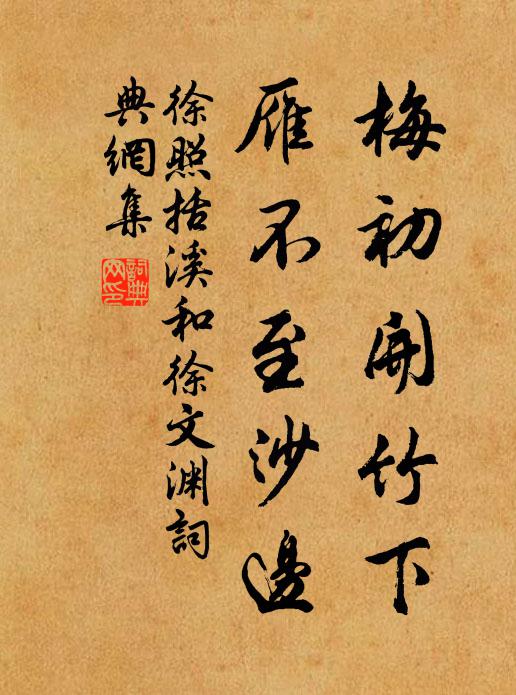 梅初開竹下
雁不至沙邊
徐照括溪和徐文淵詞
典網集
詞典網印